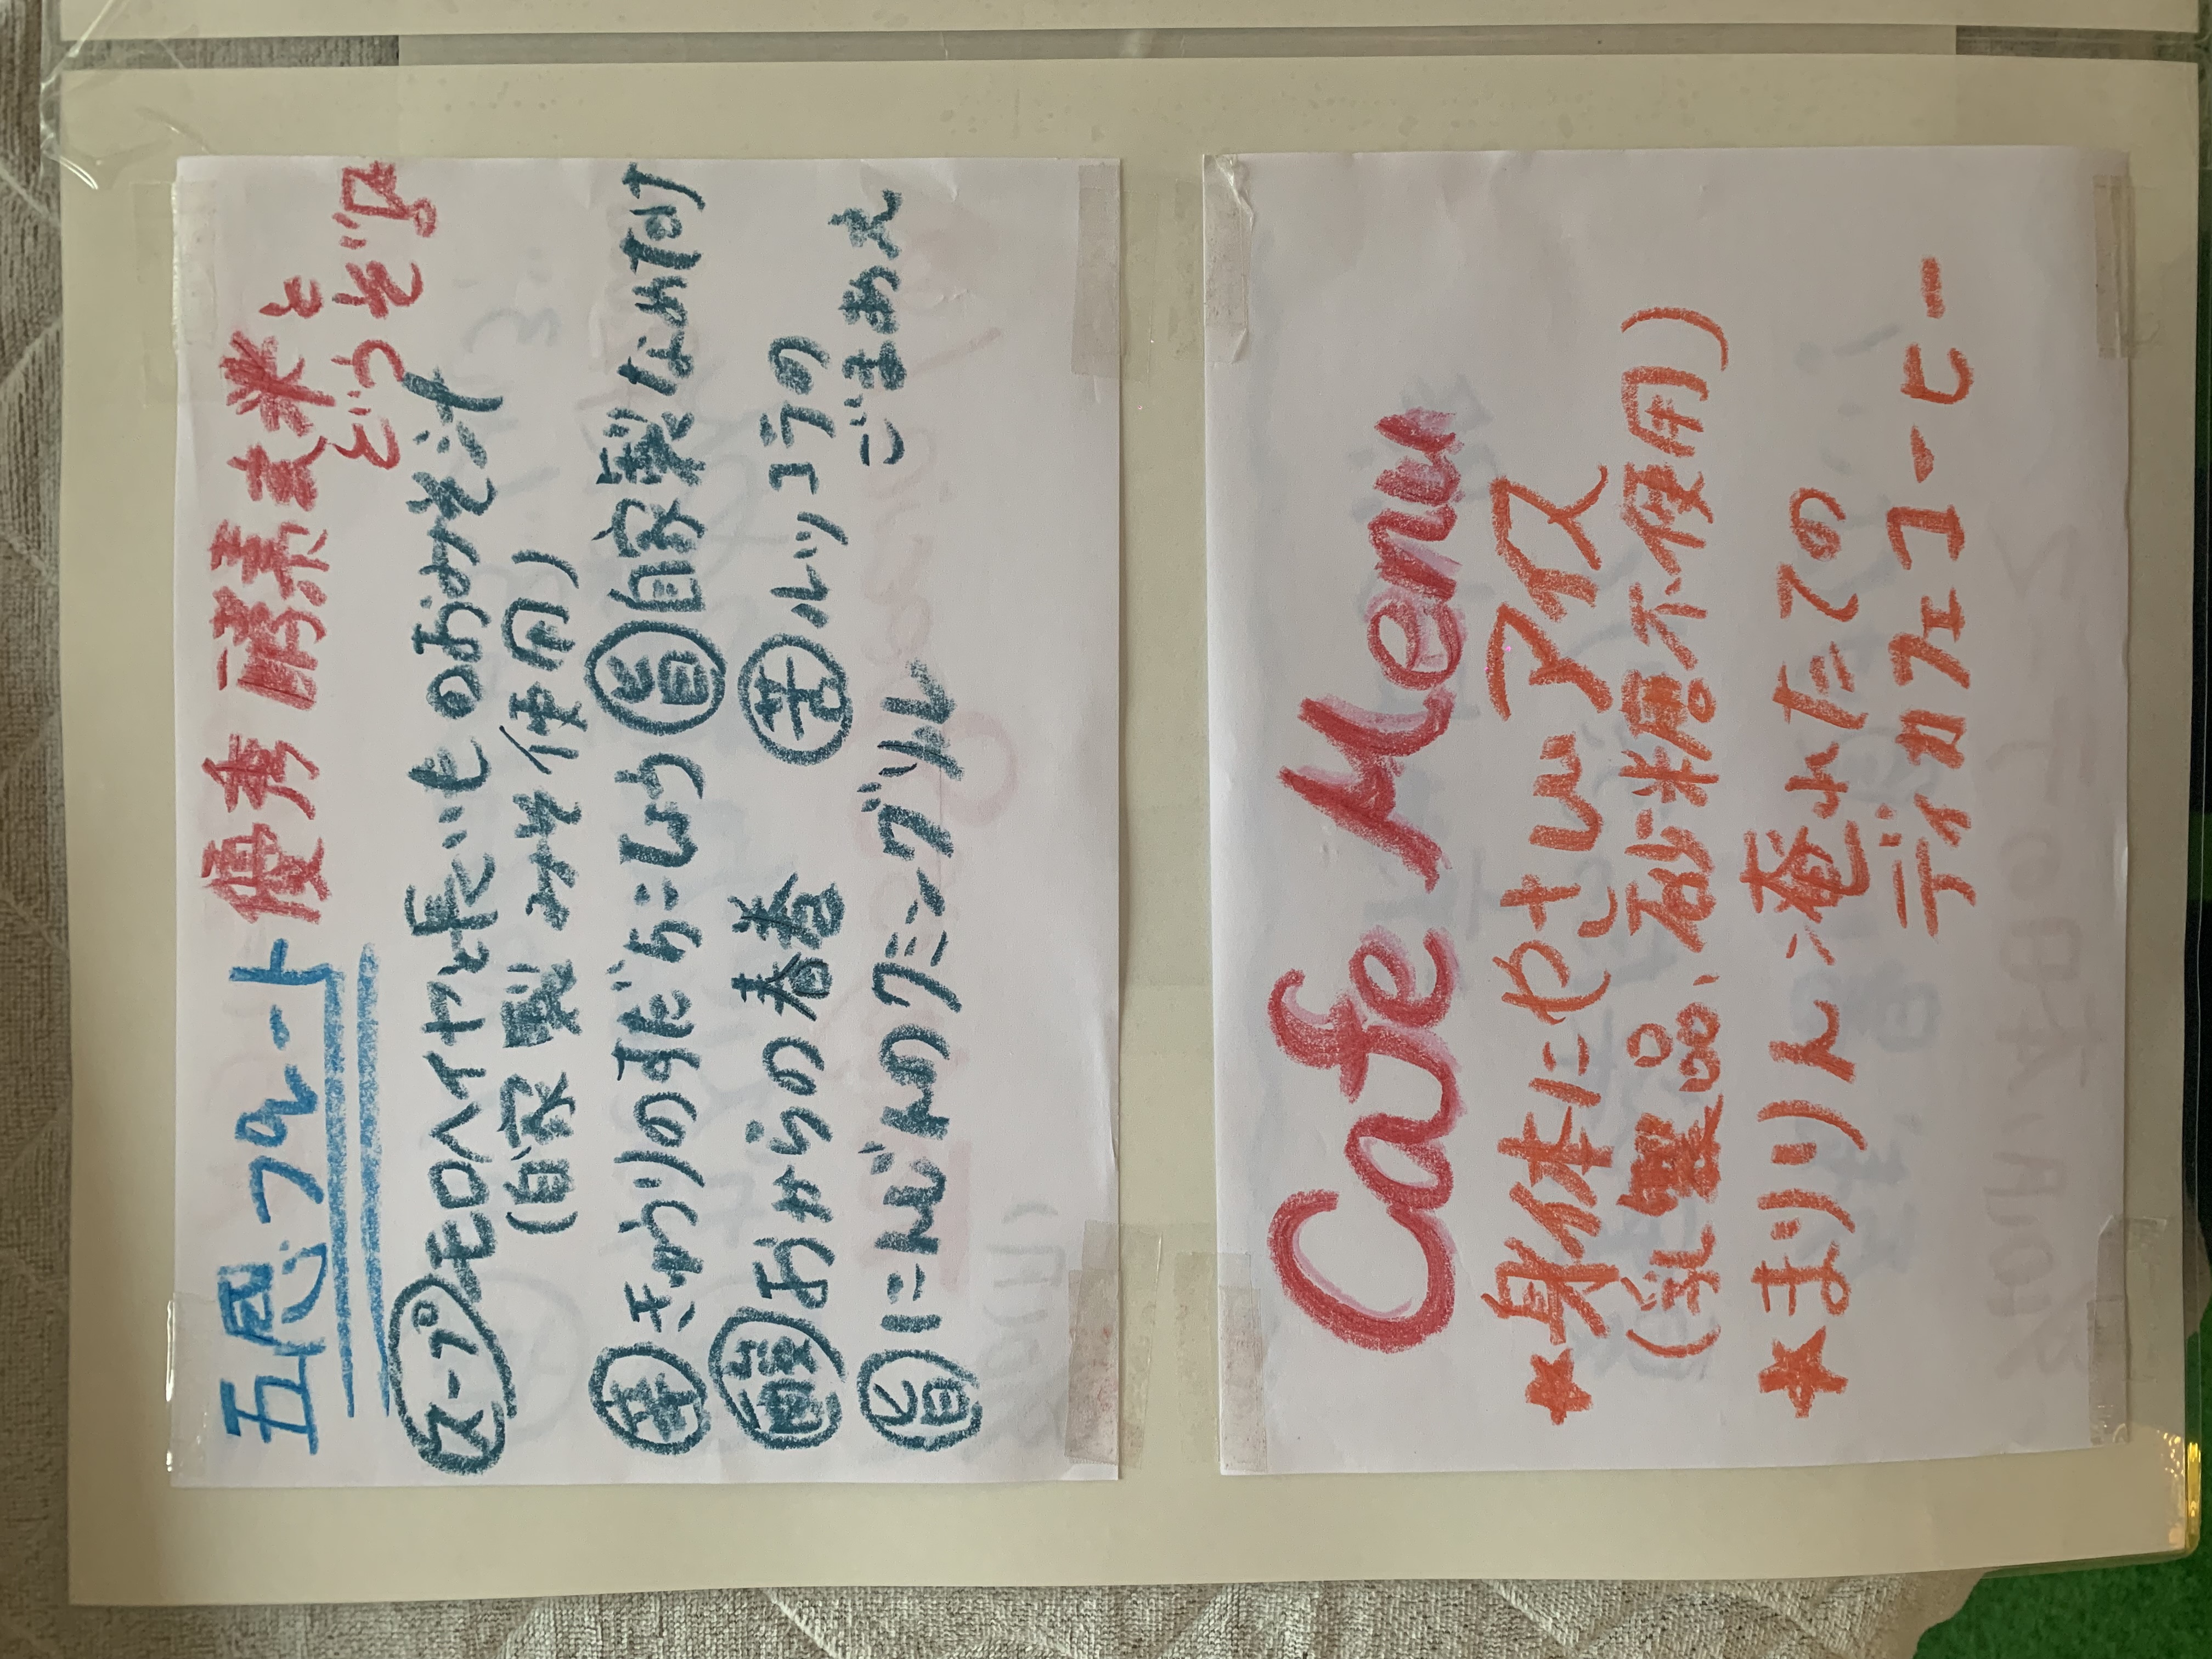 五感プレート 優秀酵素玄米と
どうぞ
スープ モロヘイヤと長いものおみそ汁
(自家製みそ使用)
辛 きゅうりのすだちこしょう 旨 自家製なめたけ
酸 おからの春巻 苦 ルッコラの
ごまあえ
旨 にんじんのクミングリル
Cafe Menu
★身体にやさしいアイス
(乳製品、砂糖不使用)
★まりりん淹れたての
ディカフェコーヒー